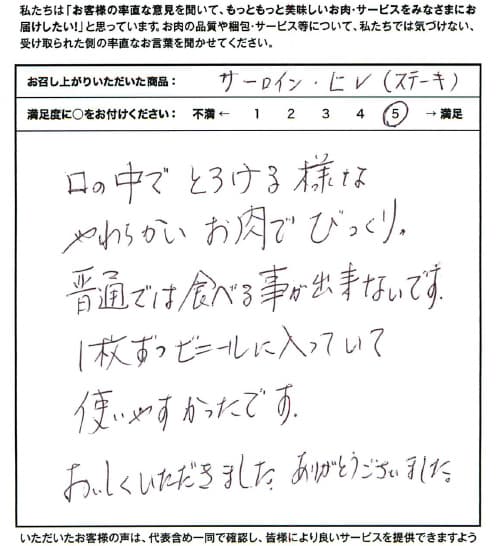 私たちは「お客様の率直な意見を聞いて、もっともっと美味しいお肉・サービスをみなさまにお
届けしたい!」と思っています。お肉の品質や梱包・サービス等について、私たちでは気づけない、
受け取られた側の率直なお言葉を聞かせてください。
お召し上がりいただいた商品： サーロイン・ヒレ(ステーキ)
満足度に○をお付けください： 不満 ← 1 2 3 4 5 → 満足
口の中で とろける 様な
やわらかい お肉で びっくり。
普通では食べる事が出来ないです。
1枚ずつビニールに入っていて
使いやすかったです。
おいしくいただきました。ありがとうございました。
いただいたお客様の声は、代表含め一同で確認し、皆様により良いサービスを提供できますよう